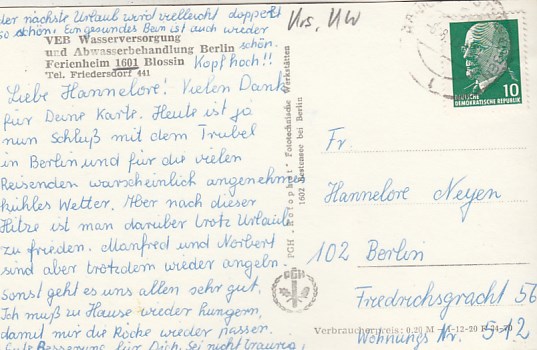 der nächste Urlaub wird vielleicht doppelt
so schön. Ein gesundes Bein ist auch wieder
schön.
Kopf hoch!!
VEB Wasserversorgung
und Abwasserbehandlung Berlin
Ferienheim 1601 Blossin
Tel. Friedersdorf 441
Liebe Hannelore! Vielen Dank
für Deine Karte. Heute ist ja
nun Schluß mit dem Trubel
in Berlin und für die vielen
Reisenden warscheinlich angenehmes
kühles Wetter. Aber nach dieser
Hitze ist man darüber trotz Urlaub
zu frieden. Manfred und Norbert
sind aber trotzdem wieder angeln.
Sonst geht es uns allen sehr gut.
Ich muß zu Hause wieder hungern,
damit mir die Röcke wieder passen.
Gute Besserung für Dich. Sei nicht traurig,
PGH "Rotophot" Fototechnische Werkstätten
1602 Bestensee bei Berlin
PGH
Krs. KW
DEUTSCHE
DEMOKRATISCHE REPUBLIK
10
Fr.
Hannelore Neyen
102 Berlin
Friedrichsgracht 56
Wohnungs Nr. 512
Verbraucherpreis: 0,20 M